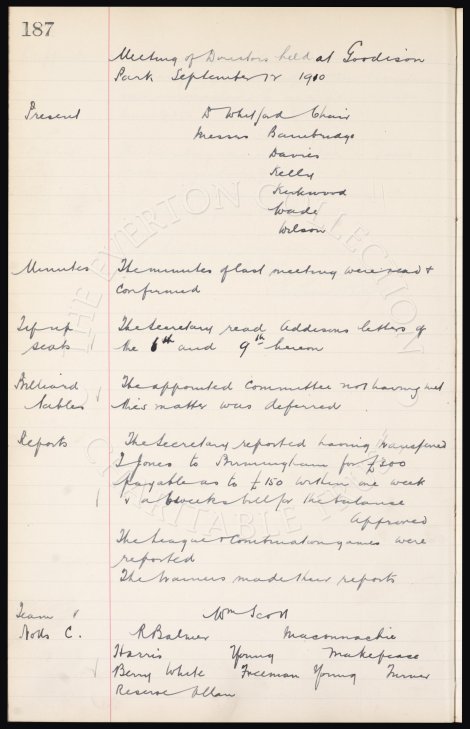 187
Meeting of Directors held at Goodison
Park September 12 1910
Present
D Whitford Chair
Messrs Bainbridge
Davies
Kelly
Kirkwood
Wade
Wilson
Minutes The minutes of last meeting were read &
confirmed
Tip up The Secretary read Addisons letters of
seats the 6th and 9th hereon
Billiard The appointed Committee not having met
tables this matter was deferred
Reports The Secretary reported having transferred
T Jones to Birmingham for £300
payable as to £150 within one week
& a 6 weeks bill for the balance
Approved
The League & Combination games were
reported
The trainers made their reports
Team v Wm Scott
Notts C. R Balmer Maconnachie
Harris Young Makepeace
Berry White Freeman Young Turner
Reserve Allan
THE EVERTON COLLECTION
CHARITABLE